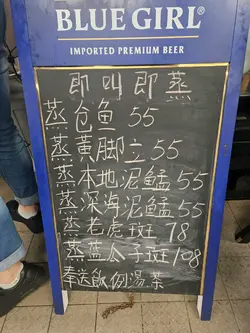 BLUE GIRL®
IMPORTED PREMIUM BEER
即叫即蒸
蒸包鱼 55
蒸黄脚立 55
蒸本地泥鯭 55
蒸深海泥鯭 55
蒸老虎斑 78
蒸蓝瓜子斑 108
奉送飲例湯.菜